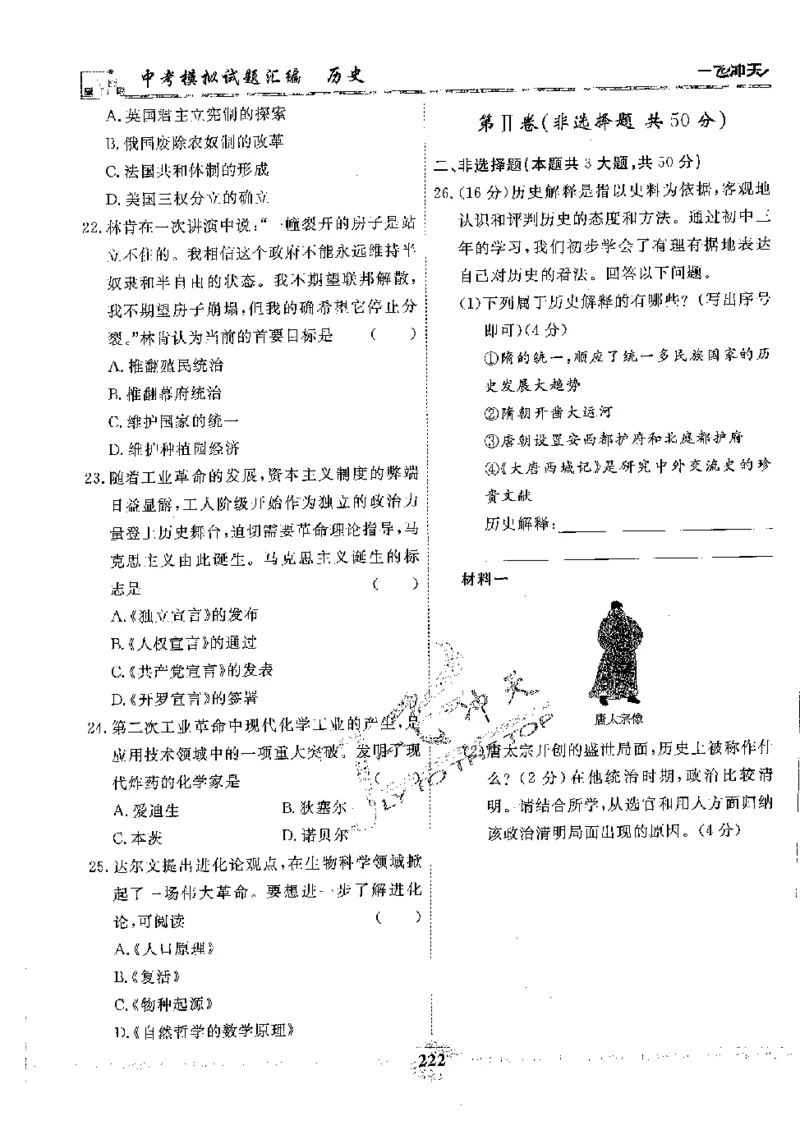 中考模拟试题汇编 历史
一飞冲天
A.英国君主立宪制的探索
B.俄国废除农奴制的改革
C.法国共和体制的形成
D.美国三权分立的确立
22.林肯在一次讲演中说:“一幢裂开的房子是站
立不住的。我相信这个政府不能永远维持半
奴隶和半自由的状态。我不期望联邦解散,
我不期望房子崩塌,但我的确希望它停止分
裂。”林肯认为当前的首要目标是 ( )
A.推翻殖民统治
B.推翻幕府统治
C.维护国家的统一
D.维护种植园经济
23.随着工业革命的发展,资本主义制度的弊端
日益显露,工人阶级开始作为独立的政治力
量登上历史舞台,迫切需要革命理论指导,马
克思主义由此诞生。马克思主义诞生的标
志是 ( )
A.《独立宣言》的发布
B.《人权宣言》的通过
C.《共产党宣言》的发表
D.《开罗宣言》的签署
24.第二次工业革命中现代化学工业的产生,是
应用技术领域中的一项重大突破。发明了现
代炸药的化学家是 ( )
A.爱迪生 B.狄塞尔
C.本茨 D.诺贝尔
25.达尔文提出进化论观点,在生物科学领域掀
起了一场伟大革命。要想进一步了解进化
论,可阅读 ( )
A.《人口原理》
B.《复活》
C.《物种起源》
D.《自然哲学的数学原理》
第Ⅱ卷(非选择题 共50分)
二、非选择题(本题共3大题,共50分)
26.(16分)历史解释是指以史料为依据,客观地
认识和评判历史的态度和方法。通过初中三
年的学习,我们初步学会了有理有据地表达
自己对历史的看法。回答以下问题。
(1)下列属于历史解释的有哪些?(写出序号
即可)(4分)
①隋的统一,顺应了统一多民族国家的历
史发展大趋势
②隋朝开凿大运河
③唐朝设置安西都护府和北庭都护府
④《大唐西域记》是研究中外交流史的珍
贵文献
历史解释:
材料一
唐太宗像
(2)唐太宗开创的盛世局面,历史上被称作什
么?(2分)在他统治时期,政治比较清
明。请结合所学,从选官和用人方面归纳
该政治清明局面出现的原因。(4分)
冲天
FLY TO THE TOP
222